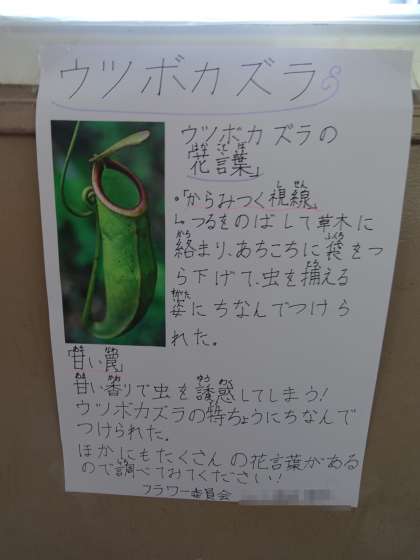 ウツボカズラ
ウツボカズラの
「花言葉」
・「からみつく視線」
↳つるをのばして草木に
絡まり、あちこちに袋をつ
ら下げて、虫を捕える
姿にちなんでつけら
れた。
「甘い罠」
甘い香りで虫を誘惑してしまう!
ウツボカズラの特ちょうにちなんで
つけられた.
ほかにもたくさんの花言葉がある
ので調べてみてください!
フラワー委員会